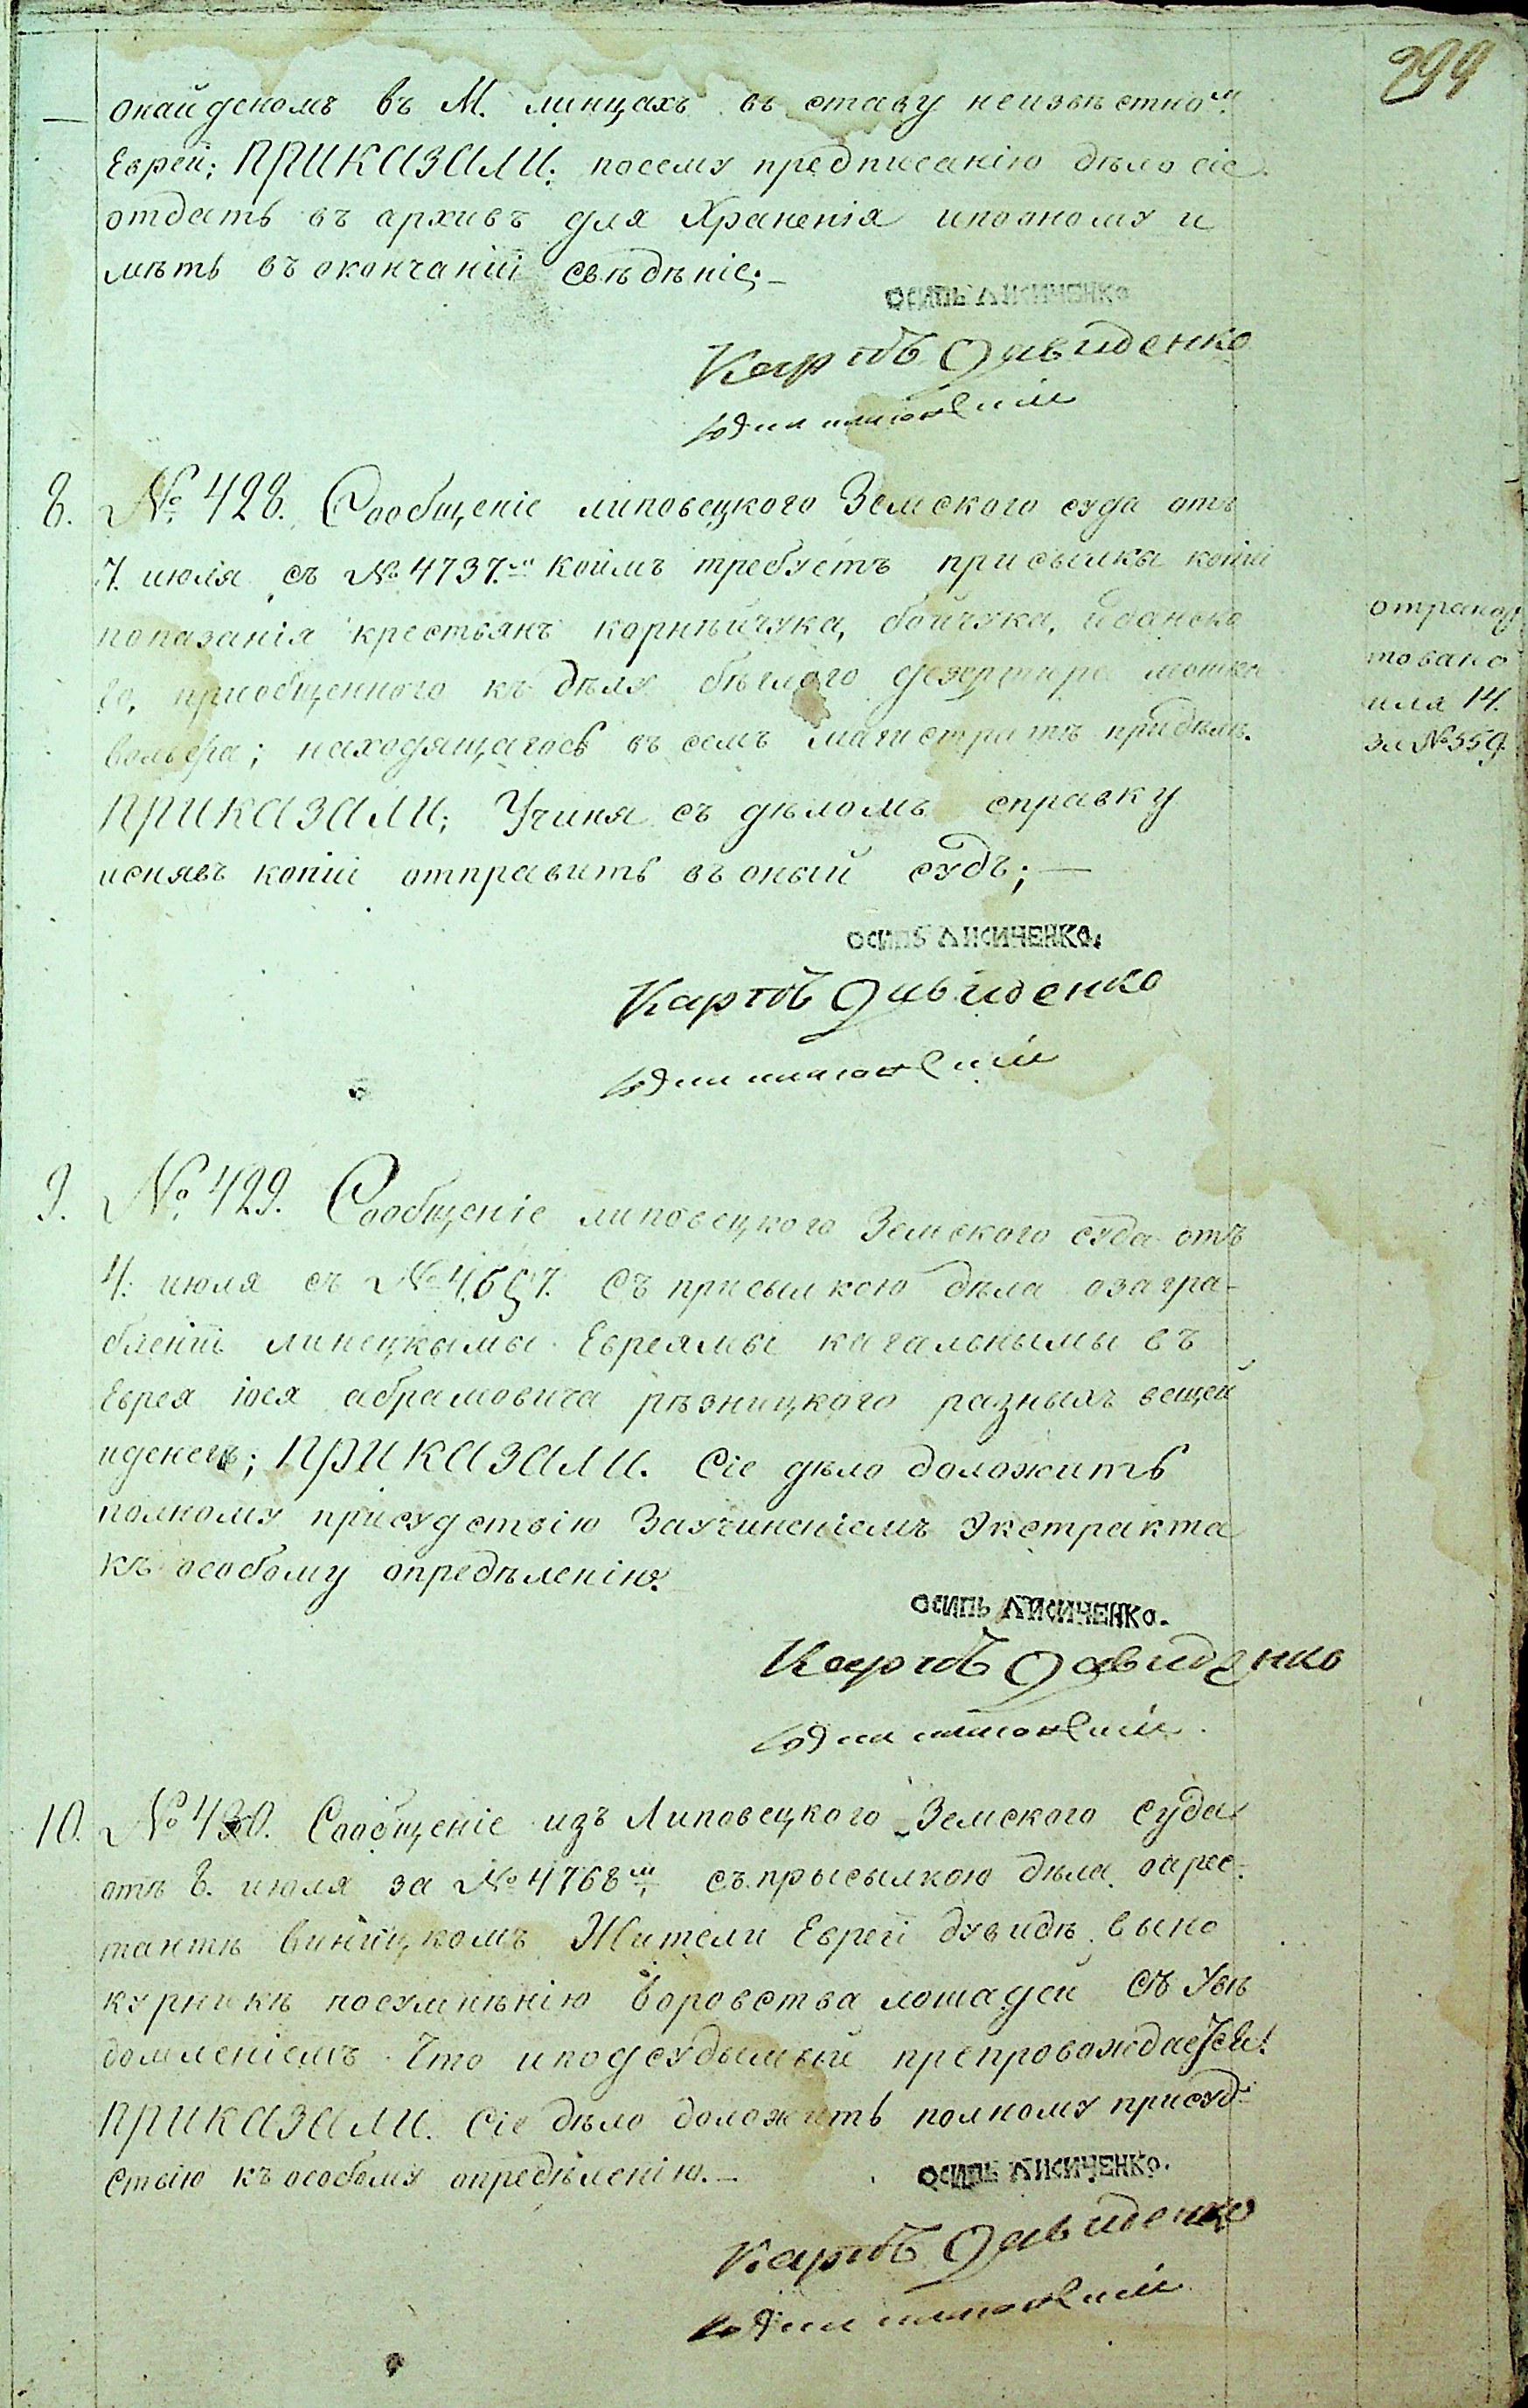 299
онайденомъ въ М. линцахъ въ ставу неизвѣстно.м
Еврей; ПРИКАЗАЛИ: посему предписанію дѣло сіе
отдать въ архивъ для Храненія ипооному и
мѣть въ окончаніи свѣдѣніе;—
ОСИПЬ ЛИСИЧЕНКО
Карпъ Давиденко
8. № 428. Сообщеніе липовецкого Земского суда отъ
7. июля съ № 4737.м коимъ требуетъ присылки копіи
показанія крестьянъ корнѣйчука, бойчука, иванско
го, приобщенного къ дѣлу бѣглого дезертира мошка
вольфа; находящагось въ семъ магистратѣ придѣлѣ.
ПРИКАЗАЛИ; Учиня съ дѣломъ справку
иснявъ копіи отправить въ оный судъ;—
отрапор
товано
июля 14.
за № 559
ОСИПЬ ЛИСИЧЕНКО.
Карпъ Давиденко
9. № 429. Сообщеніе липовецкого Земского суда отъ
4. июля съ № 4657. Съ присылкою дѣла озагра-
бленіи линецкымы Евреямы кагальнымы въ
Еврея іося абрамовича рѣзницкого разныхъ вещей
иденегъ; ПРИКАЗАЛИ. Сіе дѣло доложить
полному присудствію Заучиненіемъ Экстракта
къ особому опредѣленію.
ОСИПЬ ЛИСИЧЕНКО.
Карпъ Давиденко
10. № 430. Сообщеніе изъ Липовецкого Земского суда
отъ 8. июля за № 4768м съ прысылкою дѣла оарес-
тантѣ виницкомъ Жители Еврей дувидѣ выно
курникѣ посумнѣнію воровства лошадей Съ Увѣ
домленіемъ Что иподсудымый препровождается!
ПРИКАЗАЛИ. Сіе дѣло доложить полному присуд-
ствію къ особому опредѣленію.—
ОСИПЬ ЛИСИЧЕНКО.
Карпъ Давиденко